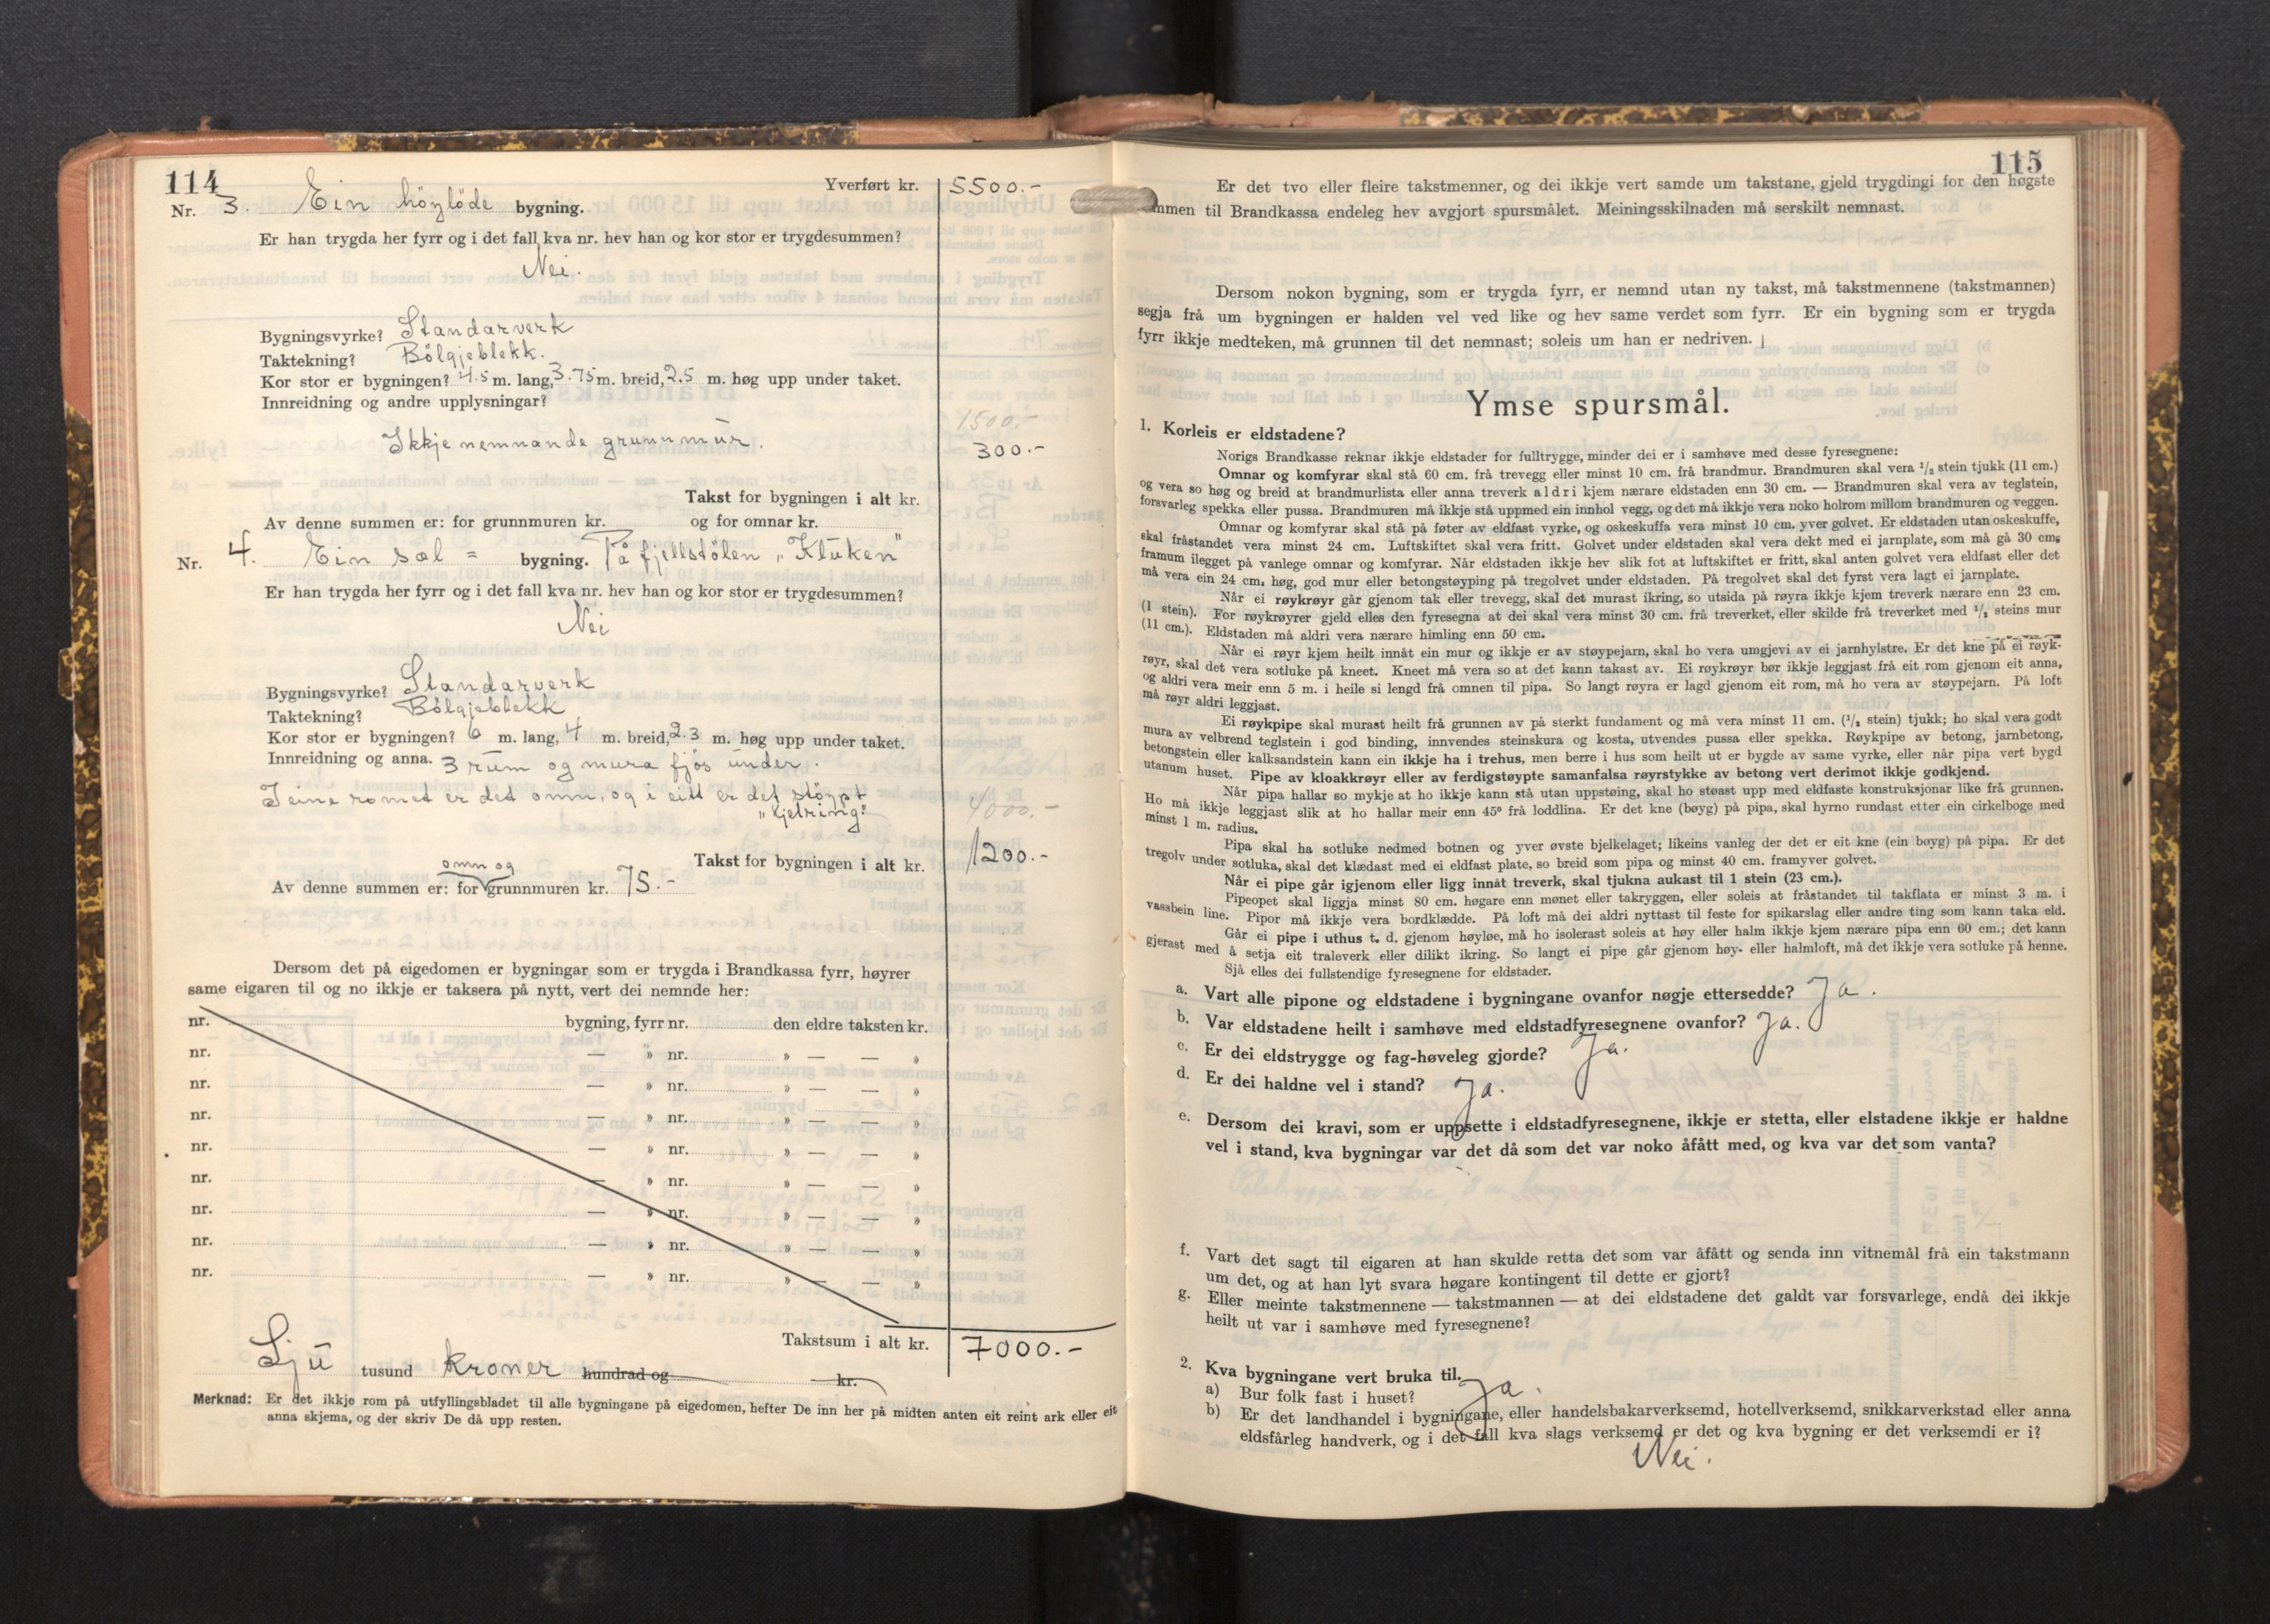 114
Yverført kr. 5500.-
Nr. 3. Ein höylöde bygning.
Er han trygda her fyrr og i det fall kva nr. hev han og kor stor er trygdesummen?
Nei.
Bygningsvyrke? Standarverk
Taktekning? Bölgjeblekk.
Kor stor er bygningen? 4.5 m. lang, 3.75 m. breid, 2.5 m. høg upp under taket.
Innreidning og andre upplysningar?
1500.-
Ikkje nemnande grunnmur. 300.-
Takst for bygningen i alt kr.
Av denne summen er: for grunnmuren kr. og for omnar kr.
Nr. 4. Ein sæl = bygning. På fjellstölen „Kluken"
Er han trygda her fyrr og i det fall kva nr. hev han og kor stor er trygdesummen?
Nei
Bygningsvyrke? Standarverk
Taktekning? Bölgjeblekk
Kor stor er bygningen? 6 m. lang, 4 m. breid, 2.3 m. høg upp under taket.
Innreidning og anna. 3 rum og mura fjös under.
I eine romet er det omn, og i eitt er det stöypt
„kjelring" 4000.-
Takst for bygningen i alt kr. 1200.-
omn og
Av denne summen er: for grunnmuren kr. 75.-
Dersom det på eigedomen er bygningar som er trygda i Brandkassa fyrr, høyrer
same eigaren til og no ikkje er taksera på nytt, vert dei nemnde her:
nr. bygning, fyrr nr. den eldre taksten kr.
nr. — » nr. » — — »
nr. — » nr. » — — »
nr. — » nr. » — — »
nr. — » nr. » — — »
nr. — » nr. » — — »
nr. — » nr. » — — »
nr. — » nr. » — — »
nr. — » nr. » — — »
Takstsum i alt kr. 7000.-
Sju tusund kroner hundrad og kr.
Merknad: Er det ikkje rom på utfyllingsbladet til alle bygningane på eigedomen, hefter De inn her på midten anten eit reint ark eller eit
anna skjema, og der skriv De då upp resten.
115
Er det tvo eller fleire takstmenner, og dei ikkje vert samde um takstane, gjeld trygdingi for den høgste
mmen til Brandkassa endeleg hev avgjort spursmålet. Meiningsskilnaden må serskilt nemnast.
Dersom nokon bygning, som er trygda fyrr, er nemnd utan ny takst, må takstmennene (takstmannen)
segja frå um bygningen er halden vel ved like og hev same verdet som fyrr. Er ein bygning som er trygda
fyrr ikkje medteken, må grunnen til det nemnast; soleis um han er nedriven.
Ymse spursmål.
1. Korleis er eldstadene?
Norigs Brandkasse reknar ikkje eldstader for fulltrygge, minder dei er i samhøve med desse fyresegnene:
Omnar og komfyrar skal stå 60 cm. frå trevegg eller minst 10 cm. frå brandmur. Brandmuren skal vera 1/2 stein tjukk (11 cm.)
og vera so høg og breid at brandmurlista eller anna treverk aldri kjem nærare eldstaden enn 30 cm. — Brandmuren skal vera av teglstein,
forsvarleg spekka eller pussa. Brandmuren må ikkje stå uppmed ein innhol vegg, og det må ikkje vera noko holrom millom brandmuren og veggen.
Omnar og komfyrar skal stå på føter av eldfast vyrke, og oskeskuffa vera minst 10 cm. yver golvet. Er eldstaden utan oskeskuffe,
skal fråstandet vera minst 24 cm. Luftskiftet skal vera fritt. Golvet under eldstaden skal vera dekt med ei jarnplate, som må gå 30 cm.
framum ilegget på vanlege omnar og komfyrar. Når eldstaden ikkje hev slik fot at luftskiftet er fritt, skal anten golvet vera eldfast eller det
må vera ein 24 cm. høg, god mur eller betongstøyping på tregolvet under eldstaden. På tregolvet skal det fyrst vera lagt ei jarnplate.
Når ei røykrøyr går gjenom tak eller trevegg, skal det murast ikring, so utsida på røyra ikkje kjem treverk nærare enn 23 cm.
(1 stein). For røykrøyrer gjeld elles den fyresegna at dei skal vera minst 30 cm. frå treverket, eller skilde frå treverket med 1/2 steins mur
(11 cm.). Eldstaden må aldri vera nærare himling enn 50 cm.
Når ei røyr kjem heilt innåt ein mur og ikkje er av støypejarn, skal ho vera umgjevi av ei jarnhylstre. Er det kne på ei røyk-
røyr, skal det vera sotluke på kneet. Kneet må vera so at det kann takast av. Ei røykrøyr bør ikkje leggjast frå eit rom gjenom eit anna,
og aldri vera meir enn 5 m. i heile si lengd frå omnen til pipa. So langt røyra er lagd gjenom eit rom, må ho vera av støypejarn. På loft
må røyr aldri leggjast.
Ei røykpipe skal murast heilt frå grunnen av på sterkt fundament og må vera minst 11 cm. (1/2 stein) tjukk; ho skal vera godt
mura av velbrend teglstein i god binding, innvendes steinskura og kosta, utvendes pussa eller spekka. Røykpipe av betong, jarnbetong,
betongstein eller kalksandstein kann ein ikkje ha i trehus, men berre i hus som heilt ut er bygde av same vyrke, eller når pipa vert bygd
utanum huset. Pipe av kloakkrøyr eller av ferdigstøypte samanfalsa røyrstykke av betong vert derimot ikkje godkjend.
Når pipa hallar so mykje at ho ikkje kann stå utan uppstøing, skal ho støast upp med eldfaste konstruksjonar like frå grunnen.
Ho må ikkje leggjast slik at ho hallar meir enn 45° frå loddlina. Er det kne (bøyg) på pipa, skal hyrno rundast etter ein cirkelboge med
minst 1 m. radius.
Pipa skal ha sotluke nedmed botnen og yver øvste bjelkelaget; likeins vanleg der det er eit kne (ein bøyg) på pipa. Er det
tregolv under sotluka, skal det klædast med ei eldfast plate, so breid som pipa og minst 40 cm. framyver golvet.
Når ei pipe går igjenom eller ligg innåt treverk, skal tjukna aukast til 1 stein (23 cm.).
Pipeopet skal liggja minst 80 cm. høgare enn mønet eller takryggen, eller soleis at fråstandet til takflata er minst 3 m. i
vassbein line. Pipor må ikkje vera bordklædde. På loft må dei aldri nyttast til feste for spikarslag eller andre ting som kann taka eld.
Går ei pipe i uthus t. d. gjenom høyløe, må ho isolerast soleis at høy eller halm ikkje kjem nærare pipa enn 60 cm.; det kann
gjerast med å setja eit traleverk eller dilikt ikring. So langt ei pipe går gjenom høy- eller halmloft, må det ikkje vera sotluke på henne.
Sjå elles dei fullstendige fyresegnene for eldstader.
a. Vart alle pipone og eldstadene i bygningane ovanfor nøgje ettersedde? Ja.
b. Var eldstadene heilt i samhøve med eldstadfyresegnene ovanfor? Ja.
c. Er dei eldstrygge og fag-høveleg gjorde? Ja.
d. Er dei haldne vel i stand? Ja.
e. Dersom dei kravi, som er uppsette i eldstadfyresegnene, ikkje er stetta, eller elstadene ikkje er haldne
vel i stand, kva bygningar var det då som det var noko åfått med, og kva var det som vanta?
f. Vart det sagt til eigaren at han skulde retta det som var åfått og senda inn vitnemål frå ein takstmann
um det, og at han lyt svara høgare kontingent til dette er gjort?
g. Eller meinte takstmennene — takstmannen — at dei eldstadene det galdt var forsvarlege, endå dei ikkje
heilt ut var i samhøve med fyresegnene?
2. Kva bygningane vert bruka til.
a) Bur folk fast i huset? Ja.
b) Er det landhandel i bygningane, eller handelsbakarverksemd, hotellverksemd, snikkarverkstad eller anna
eldsfårleg handverk, og i det fall kva slags verksemd er det og kva bygning er det verksemdi er i?
Nei.